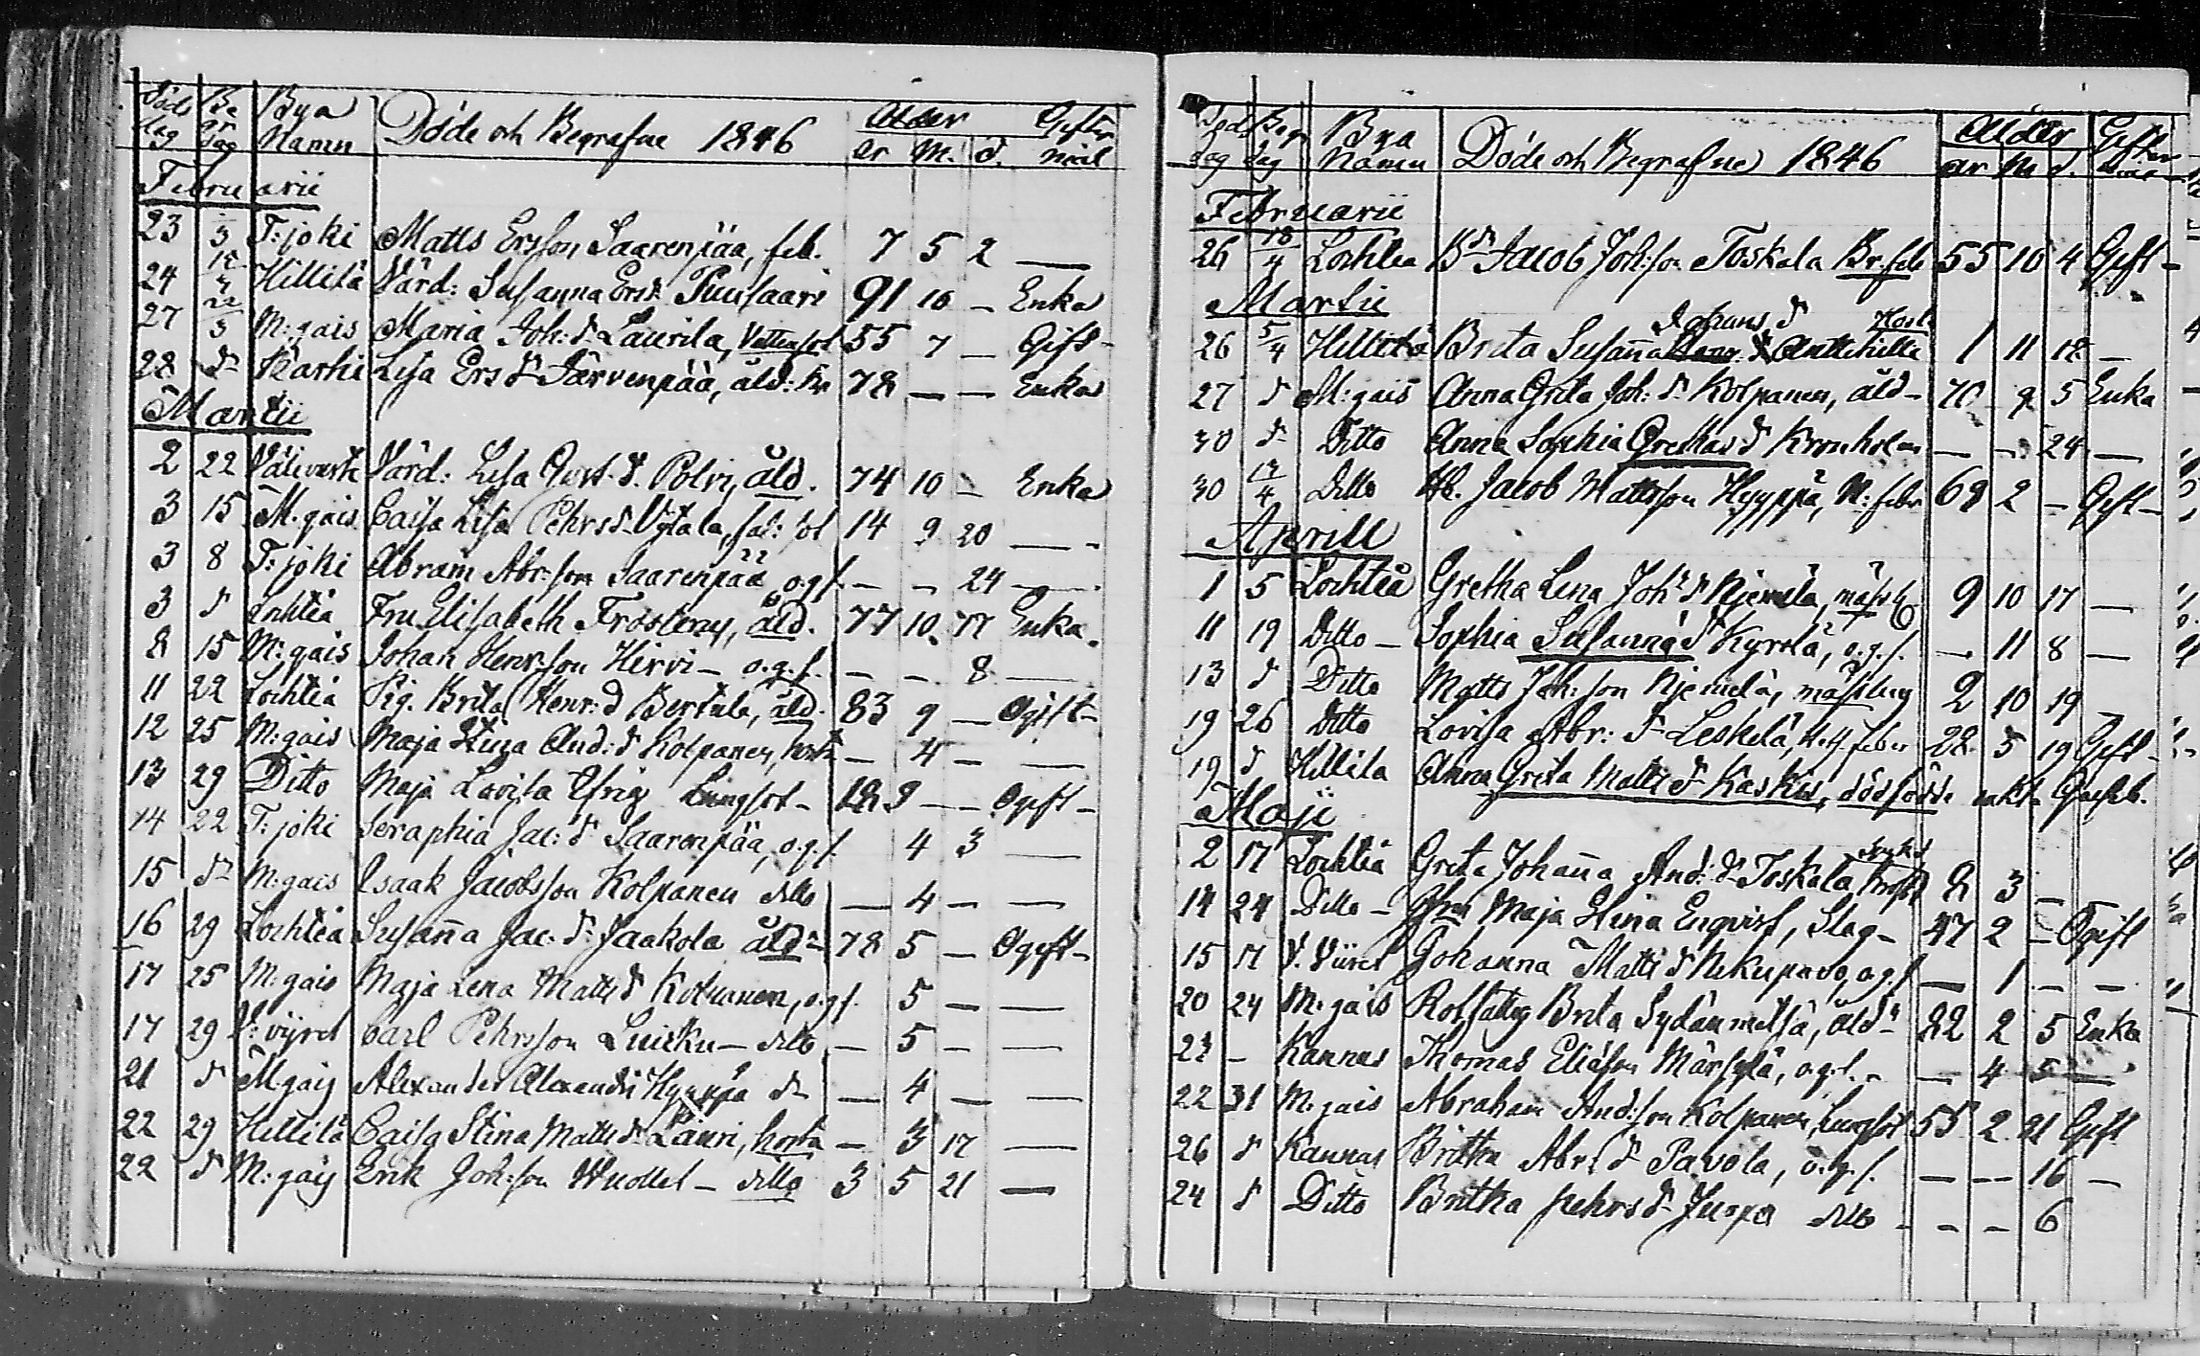 Död dag Be gr dag Bya Namn Döde och Begrafne 1846 Ålder år M. d. Giftermål
Februarii
23 3 T:joki Matts Ersson Saarenpää, feb. 7 5 2 —
24 Hillilä Värd: Susanna Ersd: Puusaari 91 10 — Enka
27 22/3 M:gais Maria Joh:d Laurila, Vattusot 55 7 — Gift
28 d Kärhi Lisa Ers d Järvenpää, åld: 78 — — Enka
Martii
2 22 Välivirre Värd: Lisa Gust d. Polvi, åld. 74 10 — Enka
3 15 M:gais Caisa Lisa Pehrs d Vytala, 14 9 20 —
3 8 T:joki Abram Abr:son Saarenpää o.g.f. — — 24 —
3 d Lochteå Fru Elisabeth Frosterus, åld. 77 10 Enka
8 15 M:gais Johan Henr:son Hirvi — o.g.f. — — 8 —
11 22 Lochteå Pig. Brita Henr:d Bertula, åld. 83 9 — Ogift
12 25 M:gais Maja Stina And:d Kolpanen, hosta — 4 — —
13 29 Ditto Maja Lovisa Lungsot — 9 — — Ogift
14 22 T:joki Seraphia Jac:d Saarenpää, o.g.f. 4 3 —
15 d M:gais Isaak Jacobsson Kolpanen ditto — 4 — —
16 29 Lochteå Susanna Jac:d Jaakola åld 78 5 — Ogift
17 25 M:gais Maja Lena Matts d Kotkanen, o.g.f. 5 — —
17 29 V:vijret Carl Pehrsson Luukku — ditto — 5 — —
21 d M:gais Alexander Alexandri Hyyppä d — 4 — —
22 29 Hillilä Caisa Stina Matts d Lauri, hosta — 3 17 —
22 d M:gais Erik Joh:son Wuollet — ditto 3 5 21 —
Död dag Begr dag Bya Namn Döde och Begrafne 1846 Ålder år M d. Giftermål
Februarii
26 18/4 Lochteå Bd Jacob Joh:son Toskala Br.feb 55 10 4 Gift
Martii
26 5/4 Hillilä Brita Susanna Johans d Anttihilli Host 1 11 18 —
27 d M:gais Anna Greta Joh:d Kolpanen, åld 70 9 5 Enka
30 d Ditto Anna Sophia Grethas d Kronholm — — 24 —
30 12/4 Ditto Hb. Jacob Mattsson Hyyppä, N:feber 68 2 — Gift
Aprill
1 5 Lochteå Gretha Lena Joh d Njemelä, mässl 9 10 17 —
11 19 Ditto — Sophia Susanna d Kyrölä, o.g.f. — 11 8 —
13 d Ditto Matts Joh:son Njemelä, mässling 2 10 19 —
19 26 Ditto Lovisa Abr:d Leskelä, feber 28 5 19 Gift
19 d Hillilä Anna Greta Matts d Kaskis, dödfödt
Maji
2 17 Lochteå Greta Johanna And:d Toskala 2 3 —
14 24 Ditto — Maja Stina Enqvist, Slag 47 2 — Ogift
15 17 V.Viiret Johanna Matts d o.g.f. — 1 — —
20 24 M:gais Rotfattig Brita Sydänmetsä, åld 82 2 5 Enka
23 — Kannus Thomas Eliæson Märsylä, o.g.f. — 4 5 —
22 31 M:gais Abraham And:son Kolpanen, Lungsot 55 2 21 Gift
26 d Kannus Britha Abr:d Pavola, o.g.f. — — 16 —
24 d Ditto Britha Pehrs d Juopo ditto — — — 6